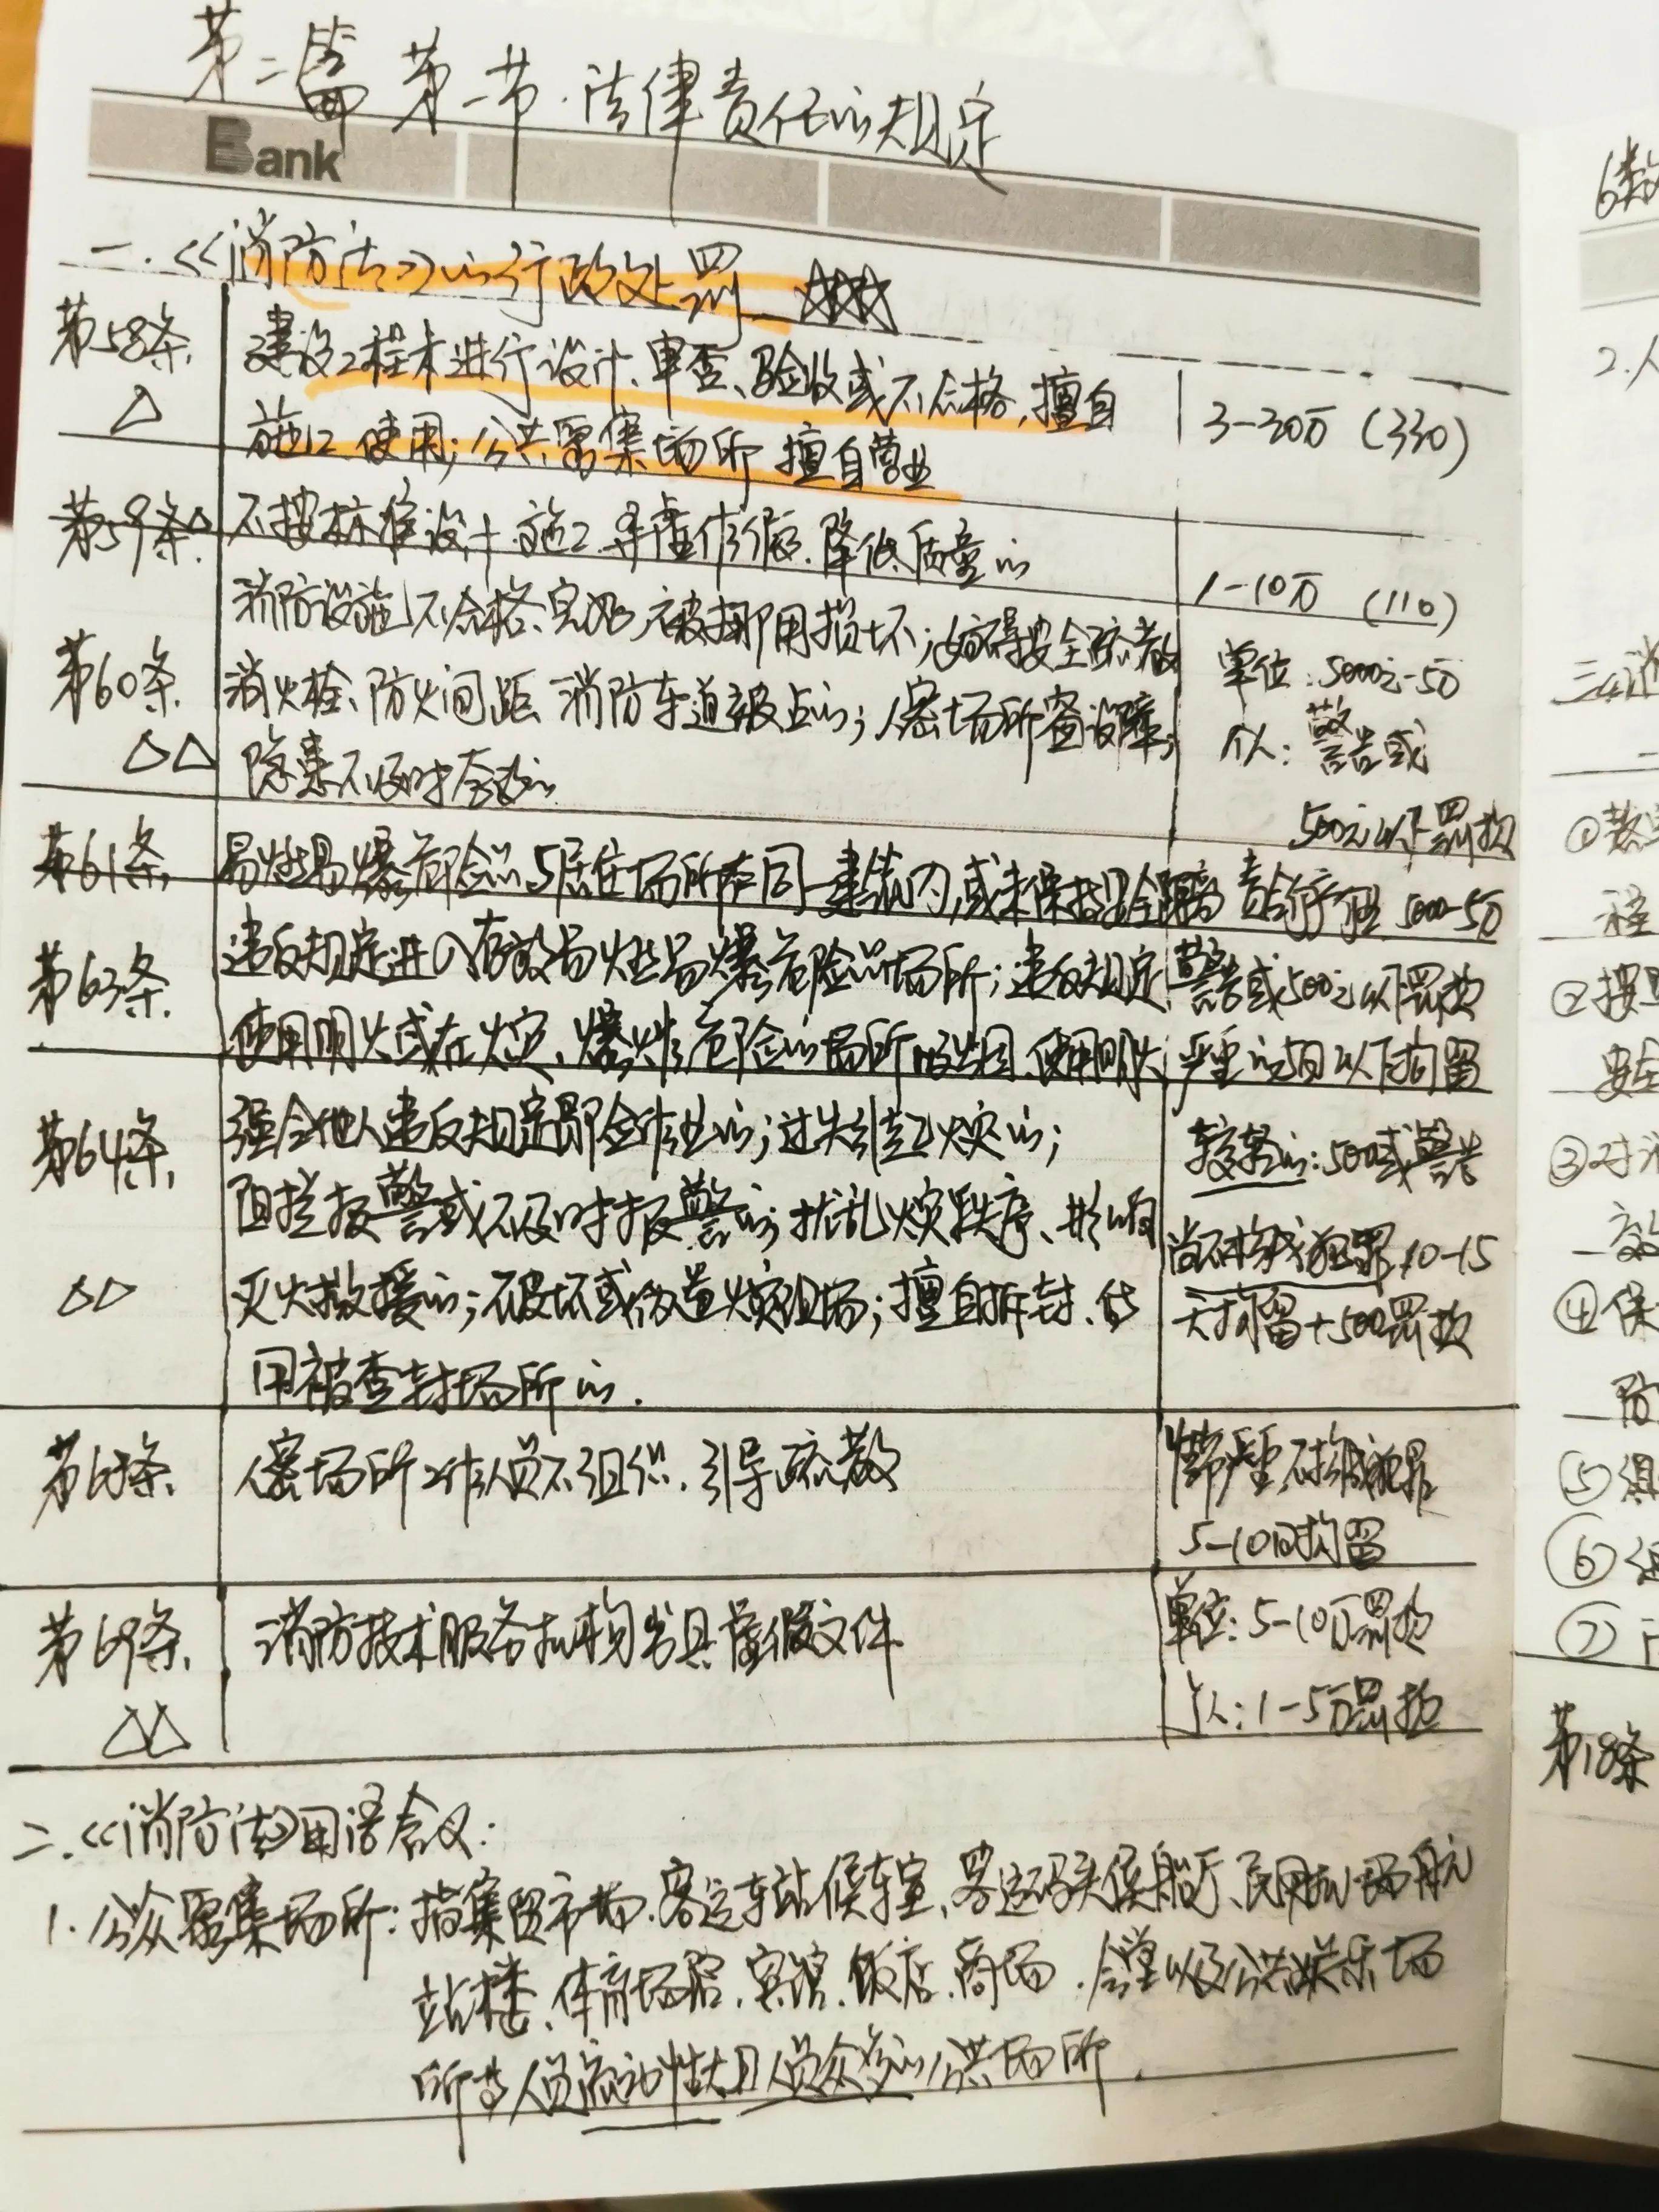 第二篇 第二节·法律责任的规定
Bank
一.《消防法》的行政处罚 ☆☆☆
第58条. 建设工程未进行设计、审查、验收或不合格,擅自 3-30万(330)
△ 施工、使用;公共聚集场所擅自营业
第59条△. 不按标准设计、施工、弄虚作假.降低质量的 1-10万(110)
消防设施不合格、完好,被挪用损坏;妨碍安全疏散
第60条. 消火栓、防火间距、消防车道被占的;人密场所窗设障; 单位:5000元-50
△△ 隐患不及时态的. 个人:警告或
500元以下罚款
第61条, 易燃易爆危险品与居住场所在同一建筑内,或未保持安全距离 责令停产停业 5000-50
第63条. 违反规定进入存放易燃易爆危险品场所;违反规定, 警告或500元以下罚款
使用明火或在火灾、爆炸危险的场所吸烟、使用明火; 严重的5日以下拘留
第64条, 强令他人违反规定冒险作业的;过失引起火灾的; 较轻的:500或警告
阻拦报警或不及时报警的;扰乱火灾秩序、影响 尚不构成犯罪,10-15
△△ 灭火救援的;破坏或伪造火灾现场;擅自拆封、使 天拘留+500罚款
用被查封场所的.
第68条. 人密场所工作人员不组织.引导疏散 情节严重,不构成犯罪
5-10日拘留
第69条. 消防技术服务机构出具虚假文件 单位:5-10万罚款
△△ 个人:1-5万罚款
二.《消防法》用语含义:
1.公众聚集场所:指集贸市场.客运车站候车室、客运码头候船厅、民用机场航
站楼、体育场馆、宾馆.饭店.商场.会堂以及公共娱乐场
所等人员流动性大且人员众多的公共场所.
6类
2.人
三.消
①
程
②按
安全
③对消
④保
防
⑤组
⑥
⑦
第18条